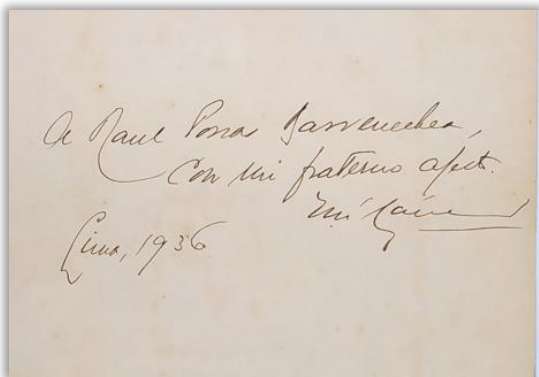 A Raul Porras Barrenechea,
con mi fraterno afecto.
Lima, 1936